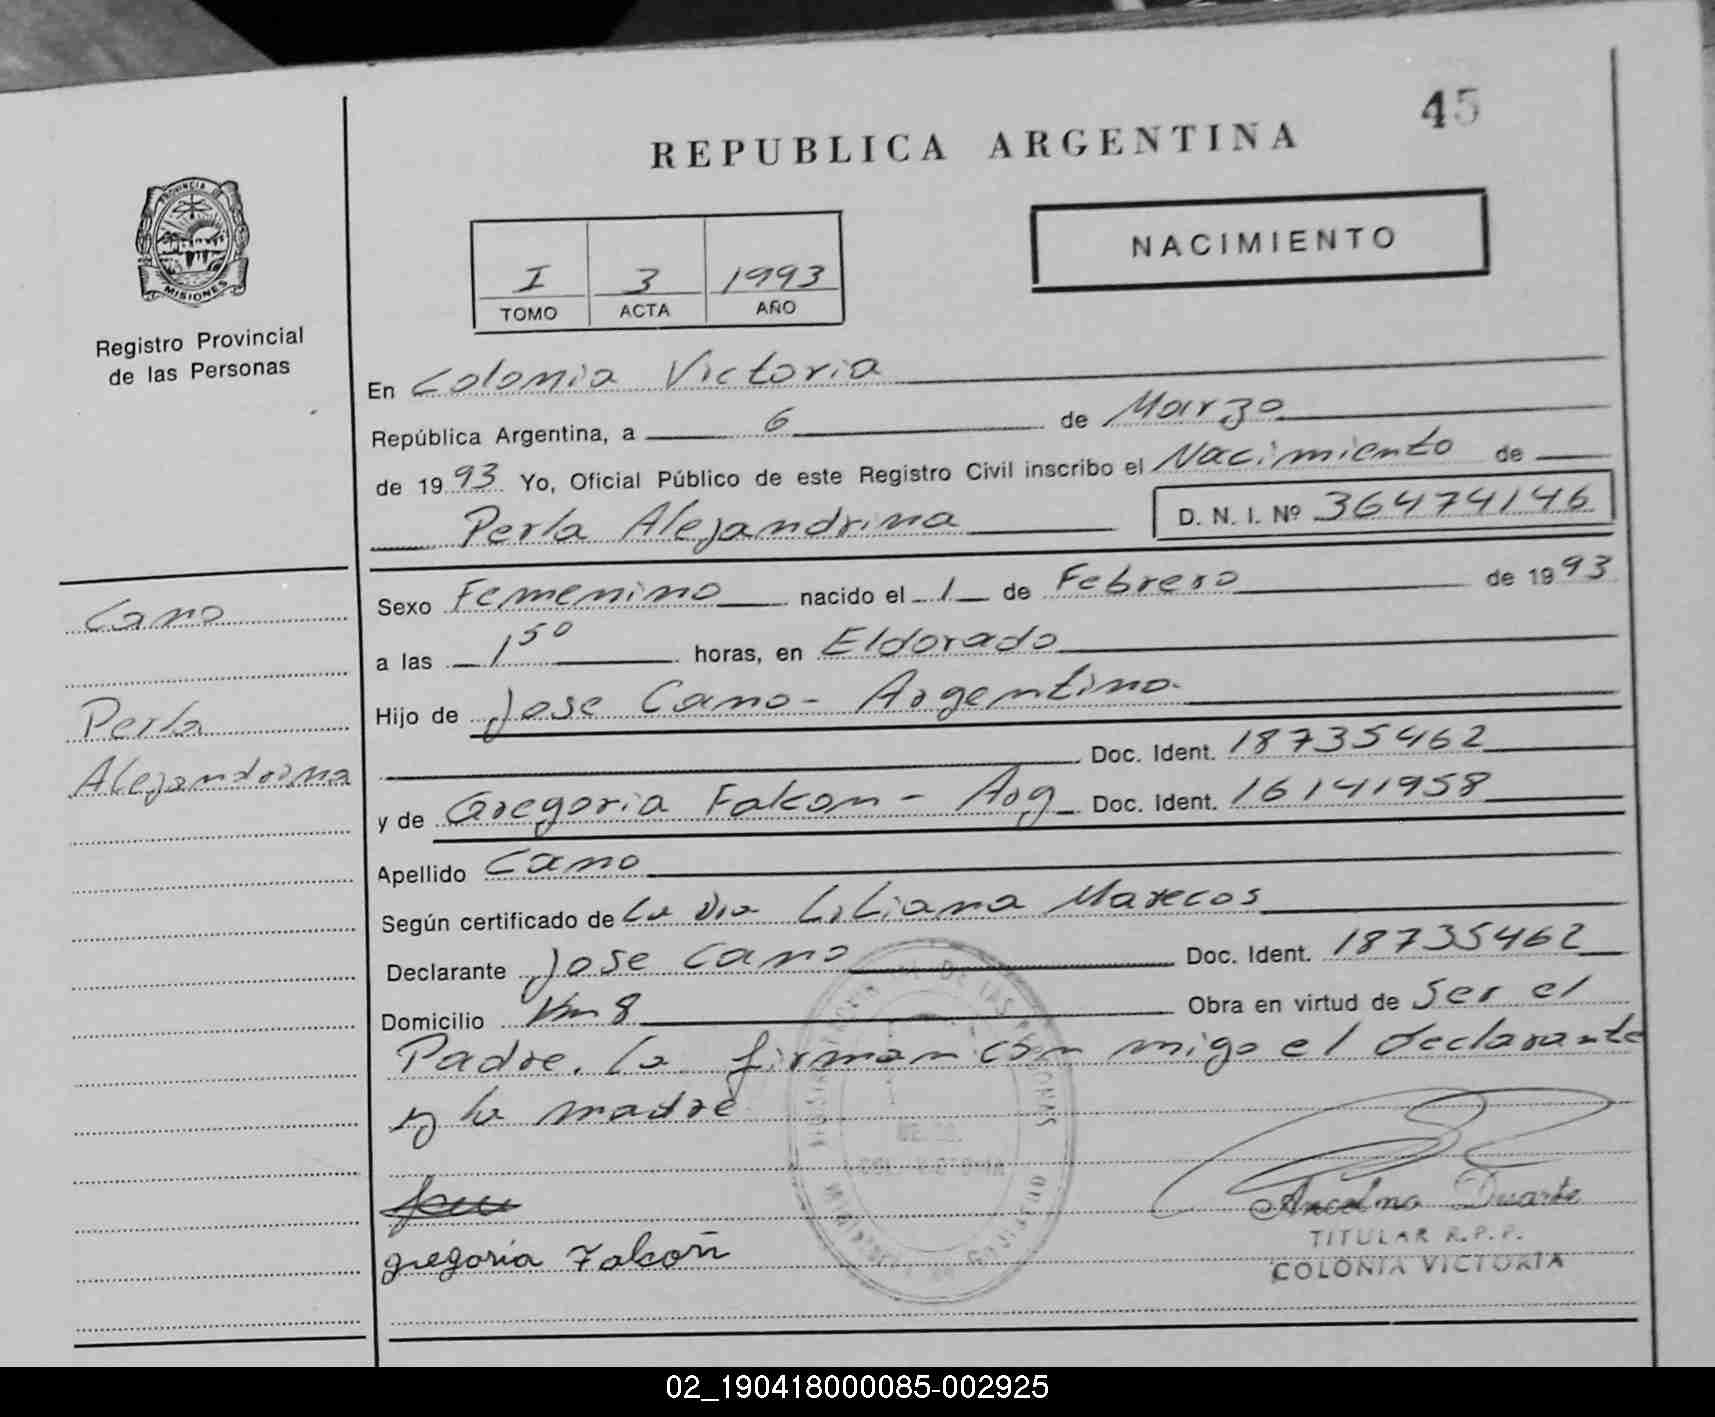 45
REPUBLICA ARGENTINA
PROVINCIA DE
MISIONES
Registro Provincial
de las Personas
NACIMIENTO
I 3 1993
TOMO ACTA AÑO
En Colonia Victoria
República Argentina, a 6 de Marzo
de 1993 Yo, Oficial Público de este Registro Civil inscribo el Nacimiento de
Perla Alejandrina D. N. I. Nº 36474146
Cano
Perla
Alejandrina
Sexo Femenino nacido el 1 de Febrero de 1993
a las 1 50 horas, en Eldorado
Hijo de Jose Cano - Argentino.
Doc. Ident. 18735462
y de Gregoria Falcon - Arg Doc. Ident. 16141958
Apellido Cano
Según certificado de La Dra Liliana Marecos
Declarante Jose Cano Doc. Ident. 18735462
Domicilio Km 8 Obra en virtud de Ser el
Padre. La firman con migo el declarante
y la madre
gregoria Falcon
Ancelmo Duarte
TITULAR R.P.P.
COLONIA VICTORIA
02_190418000085-002925